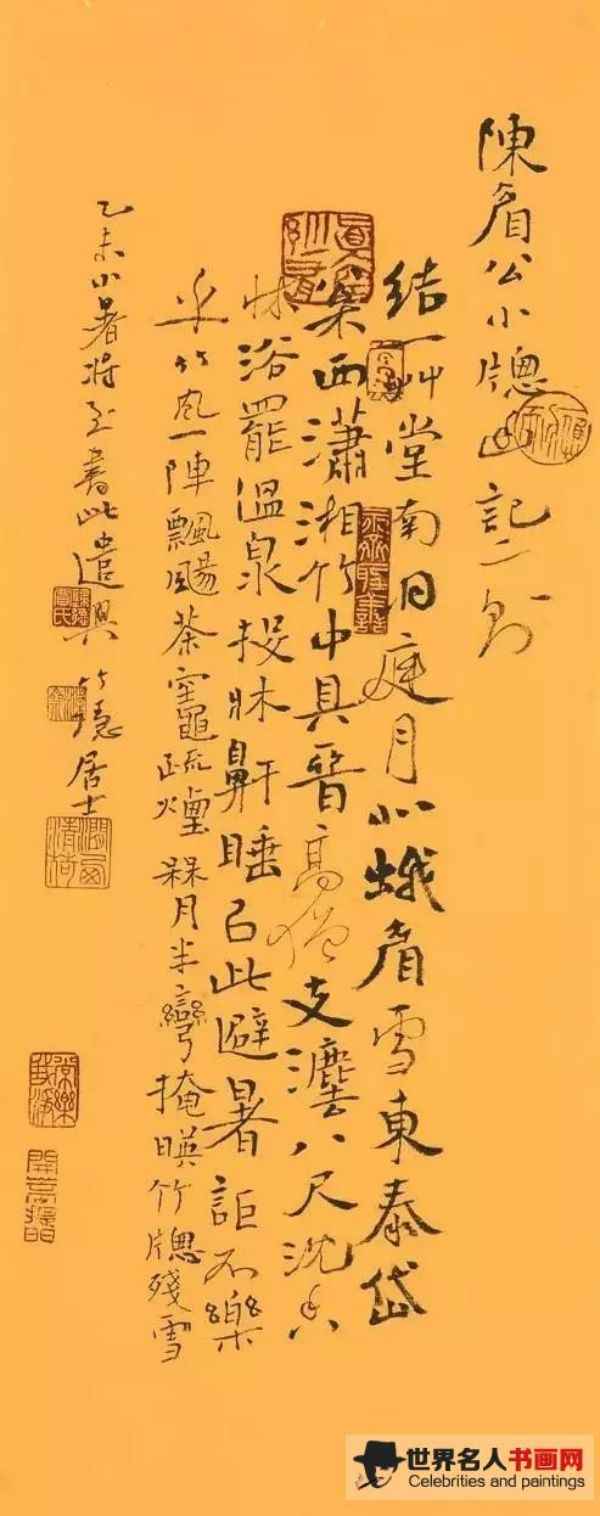 陳眉公小牕幽記二則
結一艸堂南庭月北蛾眉雪東泰岱
西瀟湘竹中具晉高僧支灋八尺沈香
牀浴罷溫泉投牀鼾睡㠯此避暑詎不樂
乎竹風一陣飄颺茶竈疏煙槑月半彎掩暎竹牕殘雪
乙未小暑將至書此遣興 竹隱居士
世界名人书画网
Celebrities and paintings